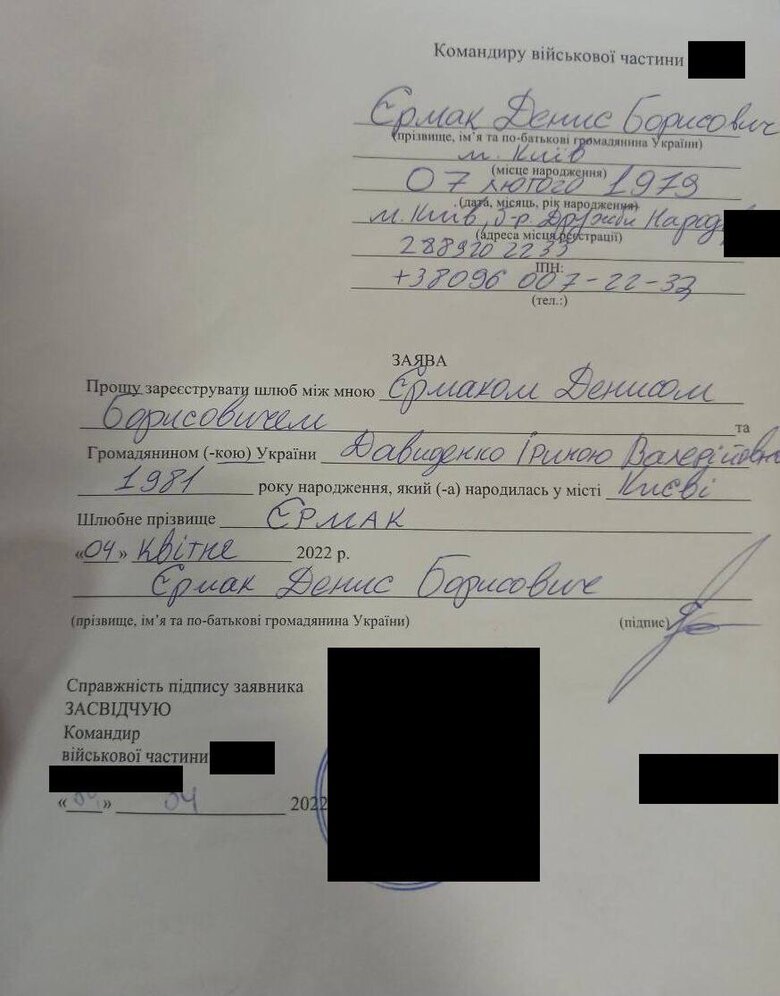 Командиру військової частини
Єрмак Денис Борисович
(прізвище, ім’я та по-батькові громадянина України)
м. Київ
(місце народження)
07 лютого 1979
(дата, місяць, рік народження)
м. Київ, б-р. Дружби Народ
(адреса місця реєстрації)
288920 2233
ІПН:
+38096 007-22-32
(тел.:)
ЗАЯВА
Прошу зареєструвати шлюб між мною Єрмаком Денисом
Борисовичем та
Громадянином (-кою) України Давиденко Іриною
1981 року народження, який (-а) народилась у місті Києві
Шлюбне прізвище ЄРМАК
«04» квітня 2022 р.
Єрмак Денис Борисович
(прізвище, ім’я та по-батькові громадянина України) (підпис)
Справжність підпису заявника
ЗАСВІДЧУЮ
Командир
військової частини
«04» 04 2022